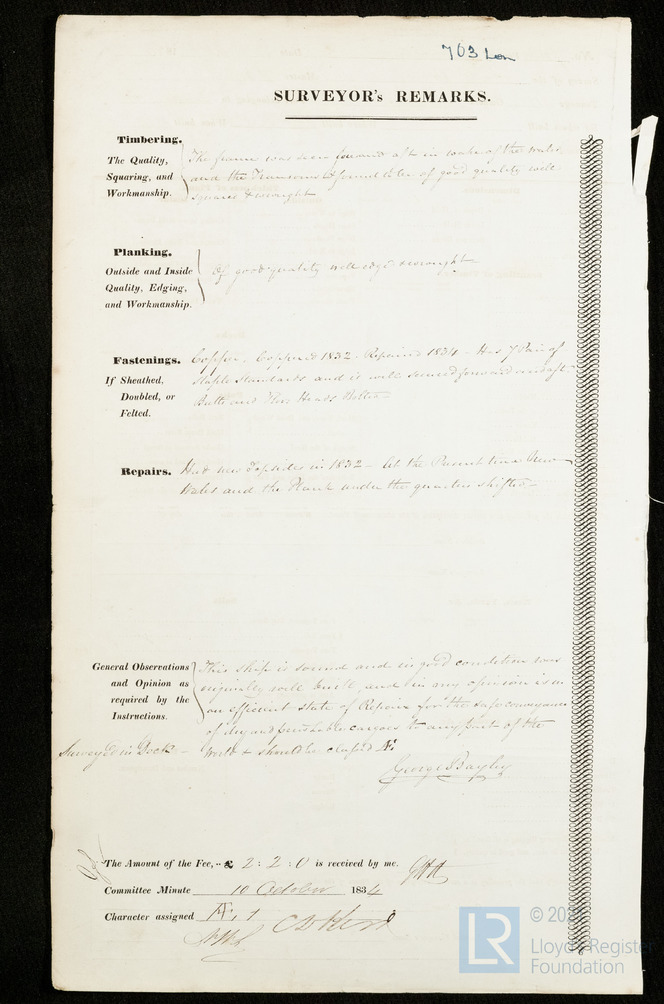 703 Lon
SURVEYOR's REMARKS.
Timbering.
The Quality,
Squaring, and
Workmanship.
The frame was seen forward aft in wake of the Wales
and the Transoms & found to be of good quality well
squared & wrought
Planking.
Outside and Inside
Quality, Edging,
and Workmanship.
Of good quality well edged & wrought
Fastenings.
If Sheathed,
Doubled, or
Felted.
Copper. Coppered 1832. Repaired 1834 - Has 7 Pair of
Staple Standards and is well secured forward and aft
Butts and Floor Heads Bolted
Repairs.
Had new Topsides in 1832 - At the Present time New
Wales and the Plank under the quarters shifted -
General Observations
and Opinion as
required by the
Instructions.
This ship is sound and in good condition was
originally well built, and in my opinion is in
an efficient state of Repair for the safe conveyance
of dry and perishable cargoes to any part of the
World & should be classed Æ
Surveyed in Dock -
George Bayley
The Amount of the Fee, £ 2 : 2 : 0 is received by me.
Committee Minute 10 October 1834
Character assigned Æ, 1
© 20
Lloyd's Register
Foundation
LR